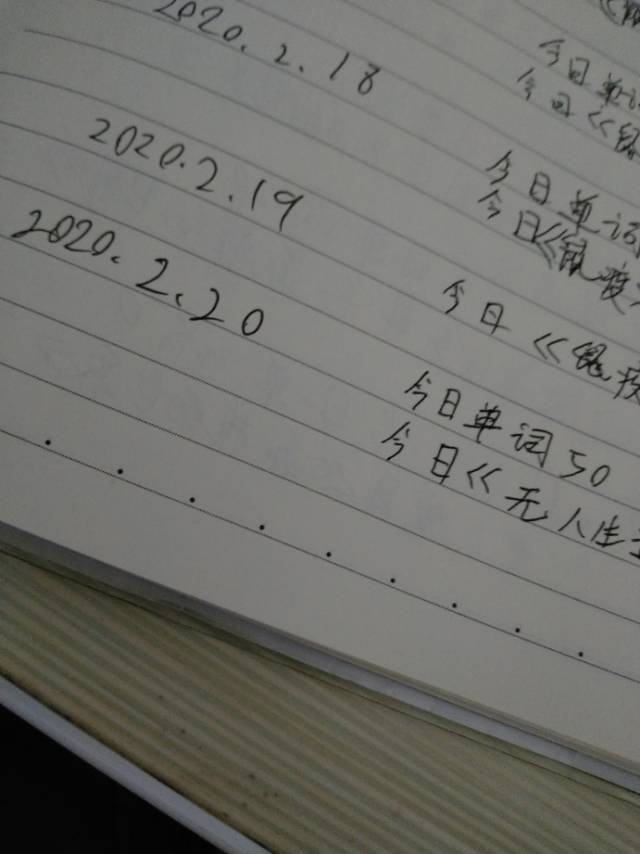 今日单词
今日《鼠
2020.2.18 今日单词
今日《鼠疫
2020.2.19 今日《鼠疫
2020.2.20 今日单词50
今日《无人生